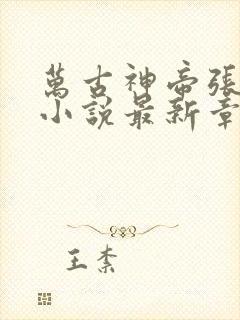 萬古神帝張
小說最新章
王柰